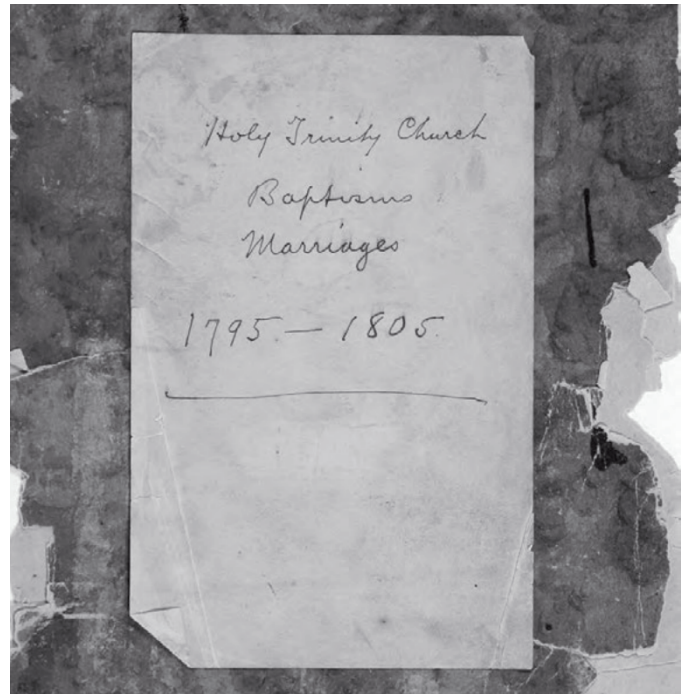 Holy Trinity Church
Baptisms
Marriages
1795 — 1805